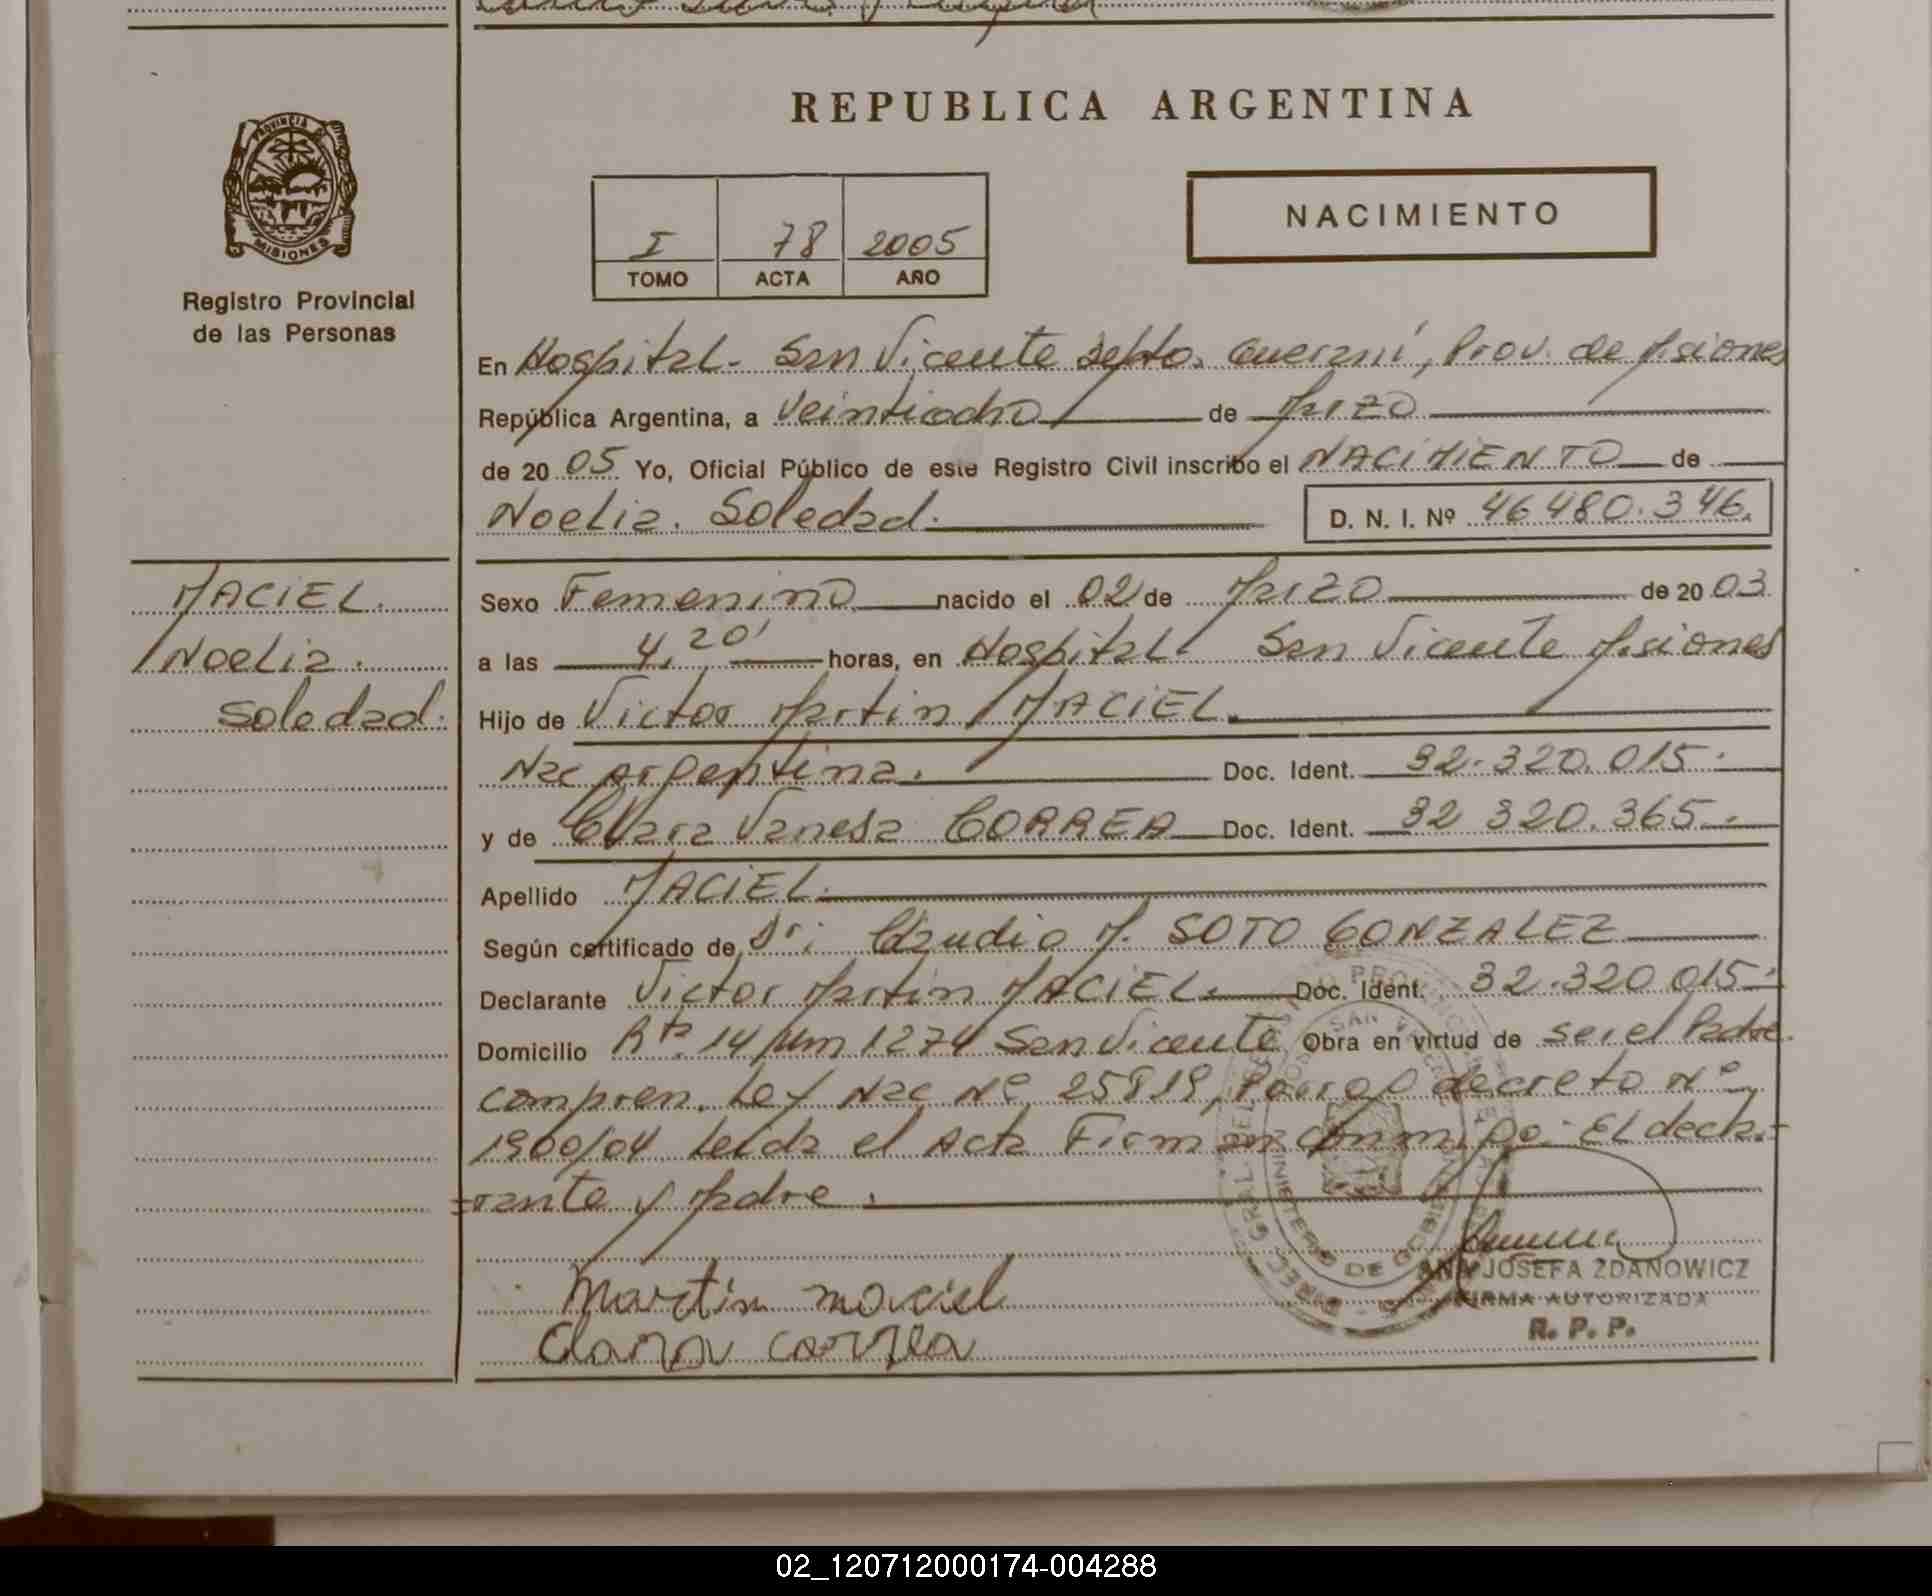 REPUBLICA ARGENTINA
PROVINCIA DE
MISIONES
Registro Provincial
de las Personas
I 78 2005
TOMO ACTA AÑO
NACIMIENTO
En Hospital - San Vicente Depto. Guaraní, Prov. de Misiones
República Argentina, a veintiocho de Marzo
de 2005 Yo, Oficial Público de este Registro Civil inscribo el NACIMIENTO de
Noelia. Soledad. D. N. I. Nº 46 480.346.
MACIEL.
Noelia.
Soledad.
Sexo Femenino nacido el 02 de Marzo de 2003
a las 4,20' horas, en Hospital San Vicente Misiones
Hijo de Victor Martin MACIEL.
Nac Argentina. Doc. Ident. 32.320.015.
y de Clara Vanesa CORREA Doc. Ident. 32 320.365.
Apellido MACIEL.
Según certificado de Dr: Claudio M. SOTO GONZALEZ
Declarante Victor Martin MACIEL. Doc. Ident. 32.320 015.
Domicilio Rta. 14 Km 1274 San Vicente Obra en virtud de ser el Padre.
compren. Ley Nac Nº 25819, Prorrog decreto Nº
1900/04 Leida el Acta Firman conmigo. El decla-
=rante y Madre.
Martin maciel
Clara correa
SAN VICENTE
MINISTERIO DE GOBIERNO
ANA JOSEFA ZDANOWICZ
FIRMA AUTORIZADA
R. P. P.
02_120712000174-004288